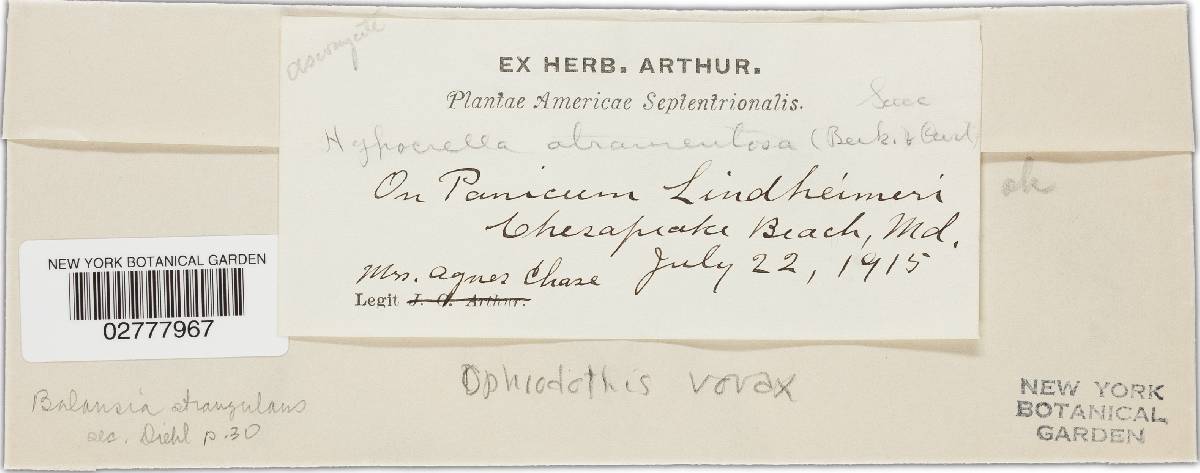 EX HERB. ARTHUR.
Plantae Americae Septentrionalis.
Sacc
Hypocrella atramentosa (Berk. & Curt)
On Panicum Lindheimeri
ok
Chesapeake Beach, Md.
July 22, 1915
Mrs. Agnes Chase
Legit J. C. Arthur.
NEW YORK BOTANICAL GARDEN
02777967
Ophiodothis vorax
Balansia strangulans
sec. Diehl p.30
NEW YORK
BOTANICAL
GARDEN